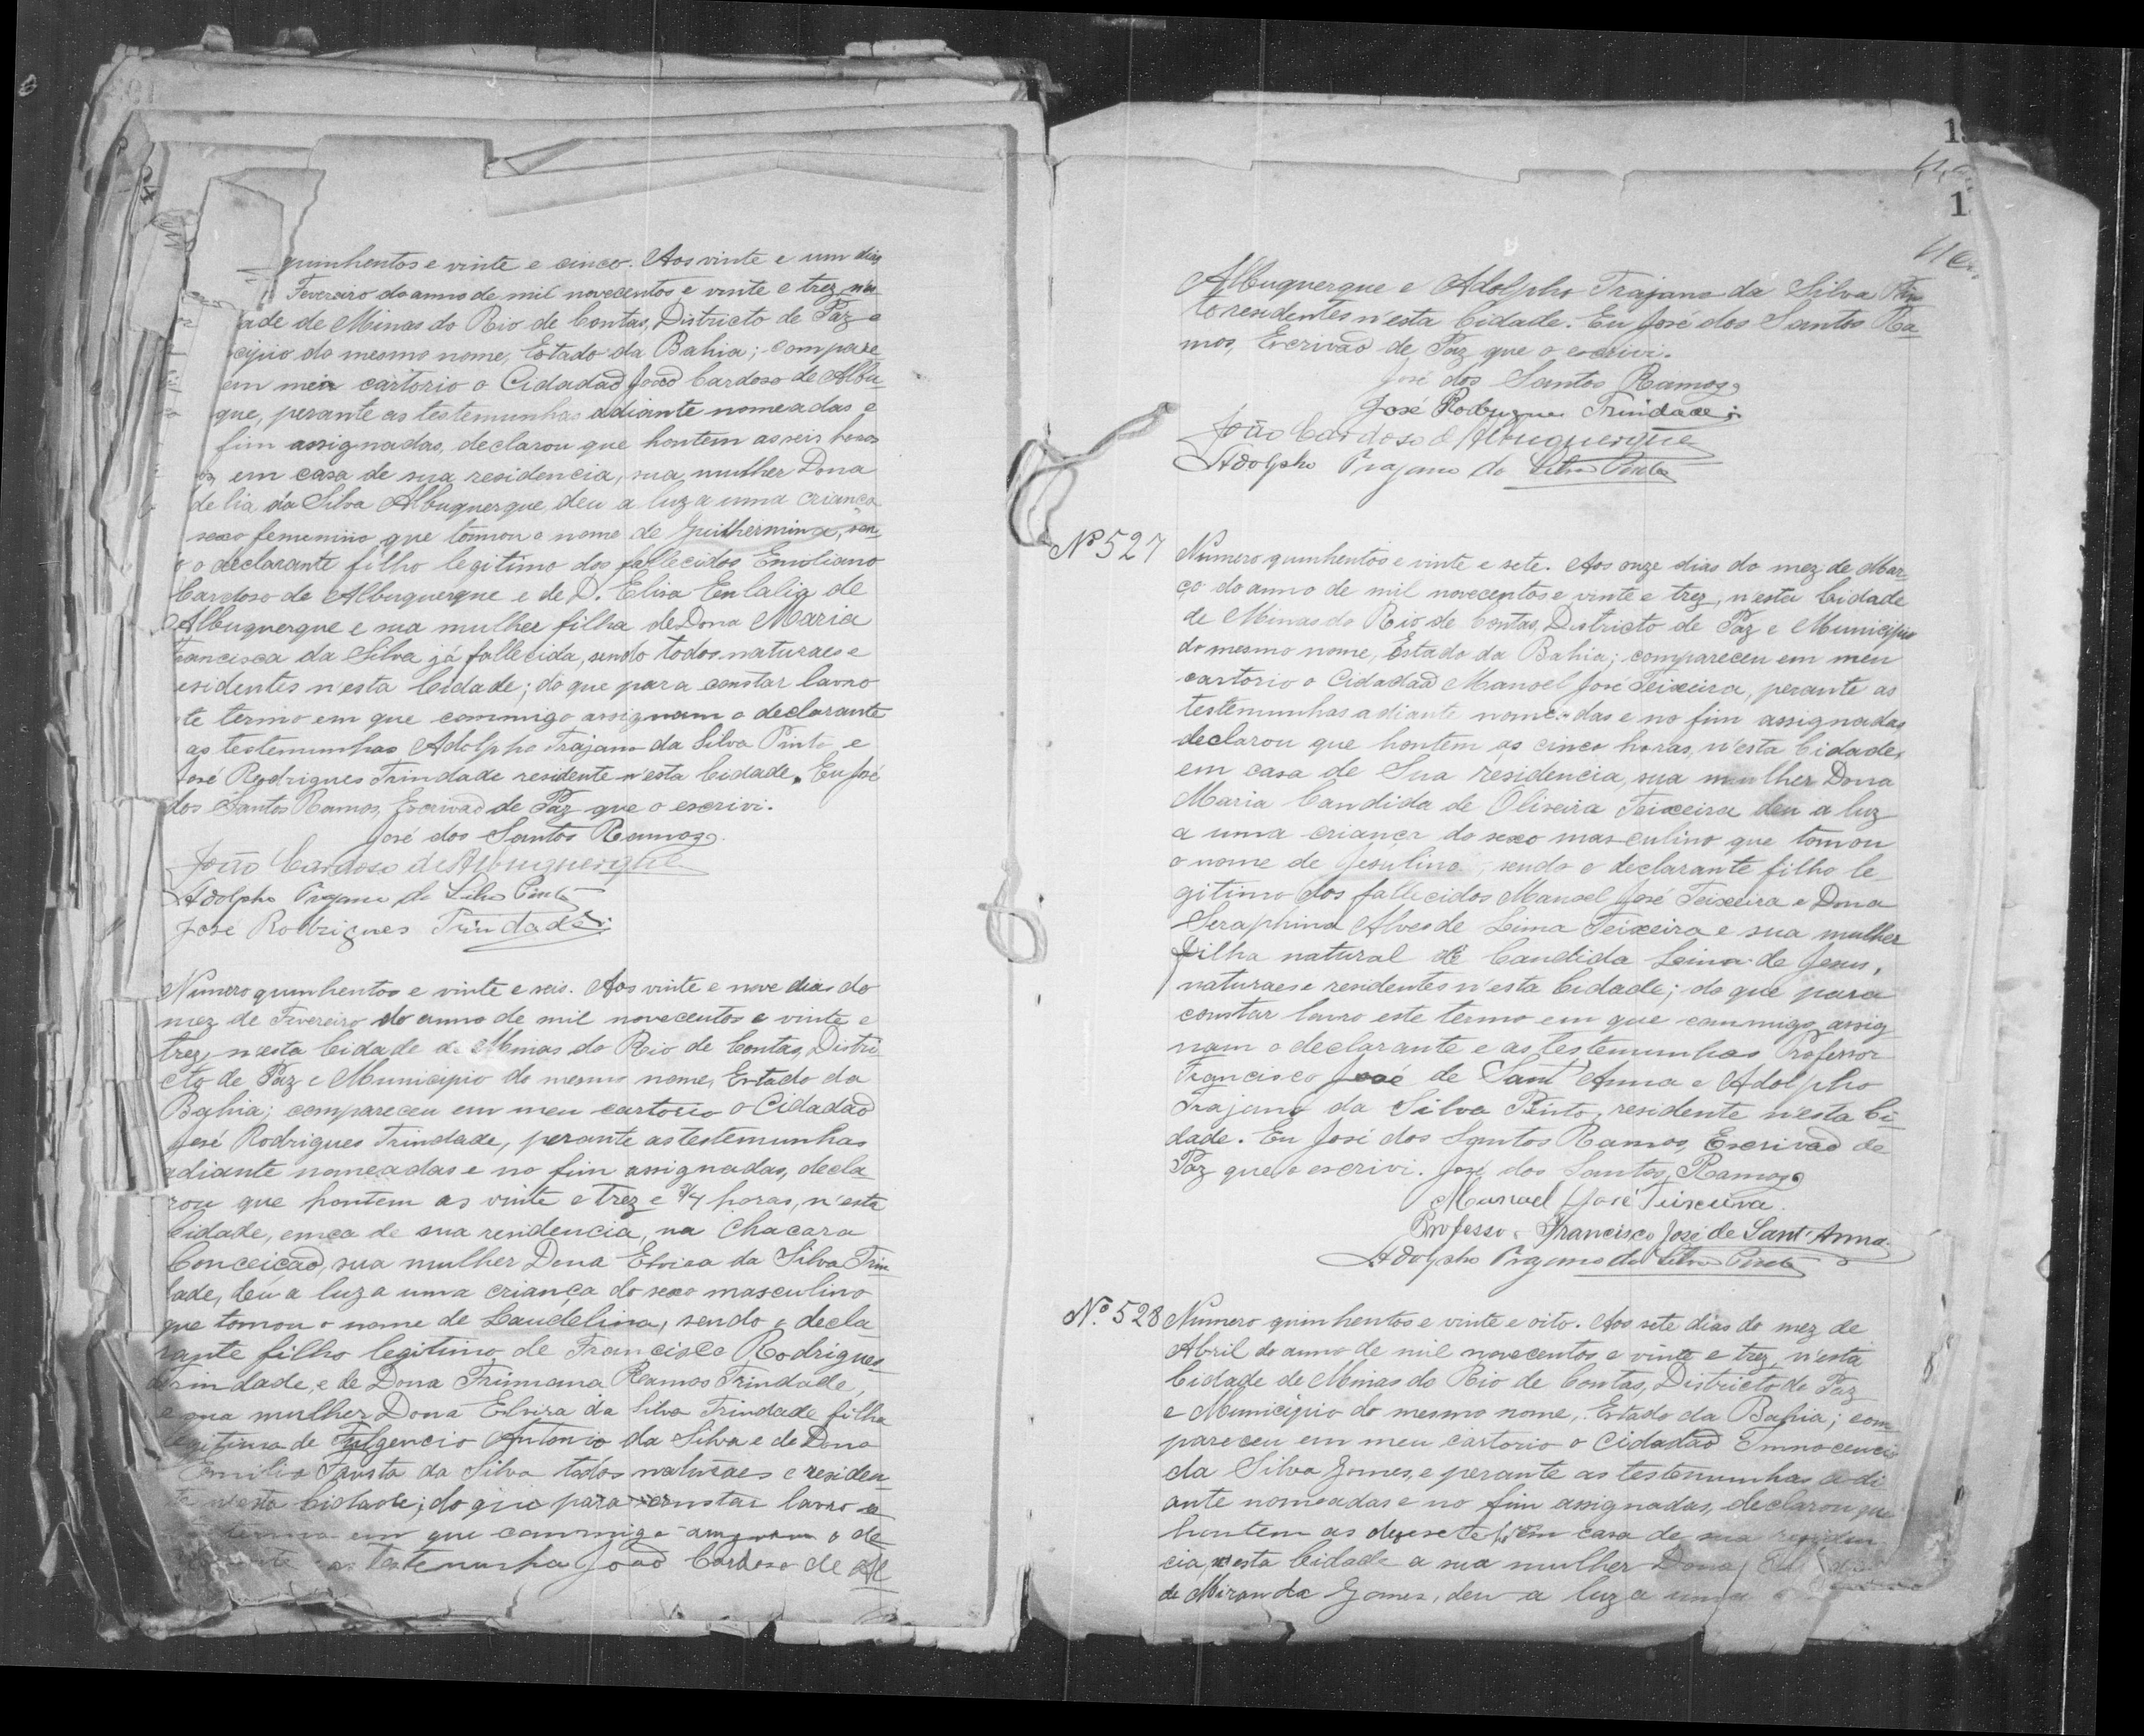 quinhentos e vinte e cinco. Aos vinte e um dias
Fevereiro do anno de mil novecentos e vinte e trez, na
ade de Minas do Rio de Contas, Districto de Paz e
cipio do mesmo nome, Estado da Bahia; compare
em meu cartorio o Cidadaõ João Cardoso de Albu-
que, perante as testemunhas adiante nomeadas e
fim assignadas, declarou que hontem as seis horas
em casa de sua residencia, sua mulher Dona
delia da Silva Albuquerque, deu a luz a uma criança
sexo femenino que tomou o nome de Guilhermina, sen
o o declarante filho legitimo dos fallecidos Emiliano
Cardoso de Albuquerque e de D. Elisa Eulalia de
Albuquerque e sua mulher filha de Dona Maria
Francisca da Silva já fallecida, sendo todos naturaes e
esidentes n'esta Cidade; do que para constar lavro
te termo em que commigo assignam o declarante
as testemunhas Adolpho Trajano da Silva Pinto e
José Rodrigues Trindade residente n'esta Cidade. Eu José
dos Santos Ramos, Escrivaõ de Paz que o escrivi.
José dos Santos Ramos
João Cardoso de Albuquerque
Adolpho Trajano da Silva Pinto
José Rodrigues Trindade
Numero quinhentos e vinte e seis. Aos vinte e nove dias do
mez de Fevereiro do anno de mil novecentos e vinte e
trez, n'esta Cidade de Minas do Rio de Contas, Distri-
cto de Paz e Municipio do mesmo nome, Estado da
Bahia; compareceu em meu cartorio o Cidadaõ
José Rodrigues Trindade, perante as testemunhas
adiante nomeadas e no fim assignadas, decla-
rou que hontem as vinte e trez e 3/4 horas, n'esta
Cidade, em ca de sua residencia, na Chacara
Conceição, sua mulher Dona Elvira da Silva Trin-
dade, deu a luz a uma criança do sexo masculino
que tomou o nome de Laudelino, sendo o decla-
rante filho legitimo de Francisco Rodrigues
Trindade, e de Dona Ramos Trindade,
e sua mulher Dona Elvira da Silva Trindade filha
legitima de Fulgencio Antonio da Silva e de Dona
Emilia Fausta da Silva todos naturaes e residen-
te n'esta Cidade; do que para constar lavro e
termo em que commigo assignam o de
as testemunha João Cardoso de Al
Albuquerque e Adolpho Trajano da Silva Pin
to residentes n'esta Cidade. Eu José dos Santos Ra-
mos, Escrivaõ de Paz que o escrivi.
José dos Santos Ramos
José Rodrigues Trindade
João Cardoso d'Albuquerque
Adolpho Trajano da Silva Pinto
Nº 527 Numero quinhentos e vinte e sete. Aos onze dias do mez de Mar-
ço do anno de mil novecentos e vinte e trez, n'esta Cidade
de Minas do Rio de Contas, Districto de Paz e Municipio
do mesmo nome, Estado da Bahia; compareceu em meu
cartorio o Cidadaõ Manoel José Teixeira, perante as
testemunhas adiante nomeadas e no fim assignadas
declarou que hontem ás cinco horas, n'esta Cidade,
em casa de Sua residencia, sua mulher Dona
Maria Candida de Oliveira Teixeira deu a luz
a uma criança do sexo masculino que tomou
o nome de Jesulino, sendo o declarante filho le
gitimo dos fallecidos Manoel José Teixeira e Dona
Seraphina Alves de Lima Teixeira e sua mulher
filha natural de Candida Leina de Jesus,
naturaes e residentes n'esta Cidade; do que para
constar lavro este termo em que commigo assig
nam o declarante e as testemunhas Professor
Francisco José de Sant'Anna e Adolpho
Trajano da Silva Pinto, residente n'esta Ci-
dade. Eu José dos Santos Ramos, Escrivaõ de
Paz que o escrivi. José dos Santos Ramos
Manoel José Teixeira.
Professor Francisco José de Sant'Anna.
Adolpho Trajano da Silva Pinto
Nº. 528 Numero quinhentos e vinte e oito. Aos sete dias do mez de
Abril do anno de mil novecentos e vinte e trez, n'esta
Cidade de Minas do Rio de Contas, Districto de Paz
e Municipio do mesmo nome, Estado da Bahia; com
pareceu em meu cartorio o Cidadaõ Innocencio
da Silva Gomes, e perante as testemunhas adi
ante nomeadas e no fim assignadas, declarou que
hontem as dezesete em casa de sua residen
cia, n'esta Cidade a sua mulher Dona
de Miranda Gomes, deu a luz a uma